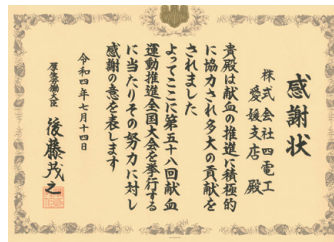 感謝状
株式会社四電工
愛媛支店 殿
貴殿は献血の推進に積極的
に協力され多大の貢献を
されました
よってここに第五十八回献血
運動推進全国大会を挙行する
に当たりその努力に対し
感謝の意を表します
令和四年七月十四日
厚生労働大臣
後藤茂之